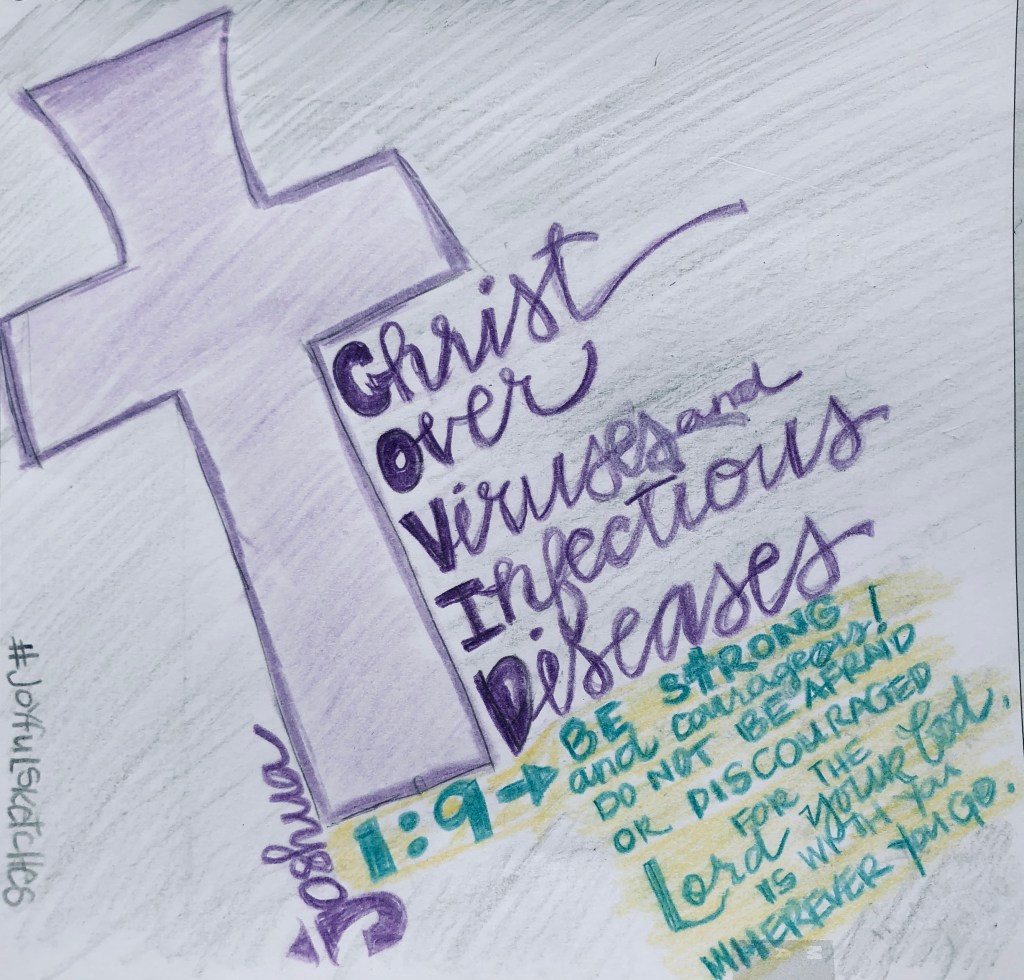 Christ
Over
Viruses and
Infectious
Diseases
Joshua
1:9
BE STRONG!
and courageous!
DO NOT BE AFRAID
OR DISCOURAGED
FOR THE
Lord YOUR God,
IS WITH You
WHEREVER You GO.
#JoyfulSketches